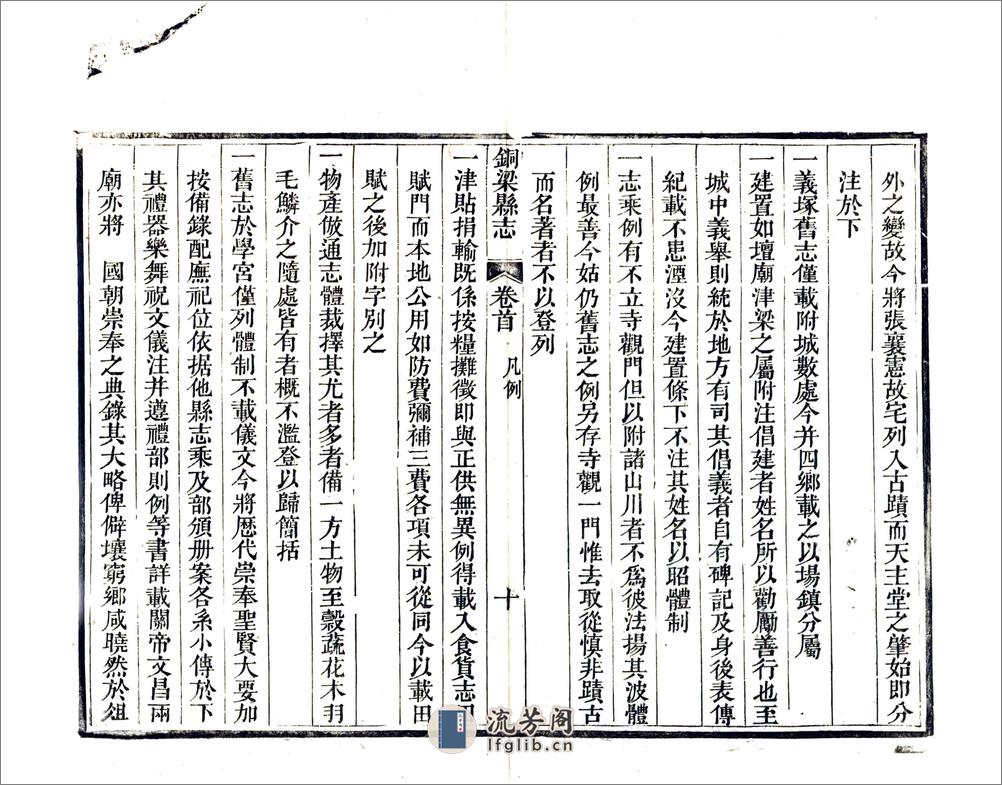 外之變故今將張襄憲故宅列入古蹟而天主堂之肇始即分
注於下
一義塚舊志僅載附城數處今并四鄉載之以場鎮分屬
一建置如壇廟津梁之屬附注倡建者姓名所以勸勵善行也至
城中義舉則統於地方有司其倡義者自有碑記及身後表傳
紀載不患湮沒今建置條下不注其姓名以昭體制
一志乘例有不立寺觀門但以附諸山川者不爲彼法揚其波體
例最善今姑仍舊志之例另存寺觀一門惟去取從慎非蹟古
而名著者不以登列
銅梁縣志 卷首 凡例 十
一津貼捐輸既係按糧攤徵即與正供無異例得載入食貨志田
賦門而本地公用如防費彌補三費各項未可從同今以載田
賦之後加附字別之
一物產倣通志體裁擇其尤者多者備一方土物至穀蔬花木羽
毛鱗介之隨處皆有者概不濫登以歸簡括
一舊志於學宮僅列體制不載儀文今將歷代崇奉聖賢大要加
按備錄配廡祀位依据他縣志乘及部頒册案各系小傳於下
其禮器樂舞祝文儀注并遵禮部則例等書詳載關帝文昌兩
廟亦將 國朝崇奉之典錄其大略俾僻壤窮鄉咸曉然於俎
流芳阁
lfglib.cn